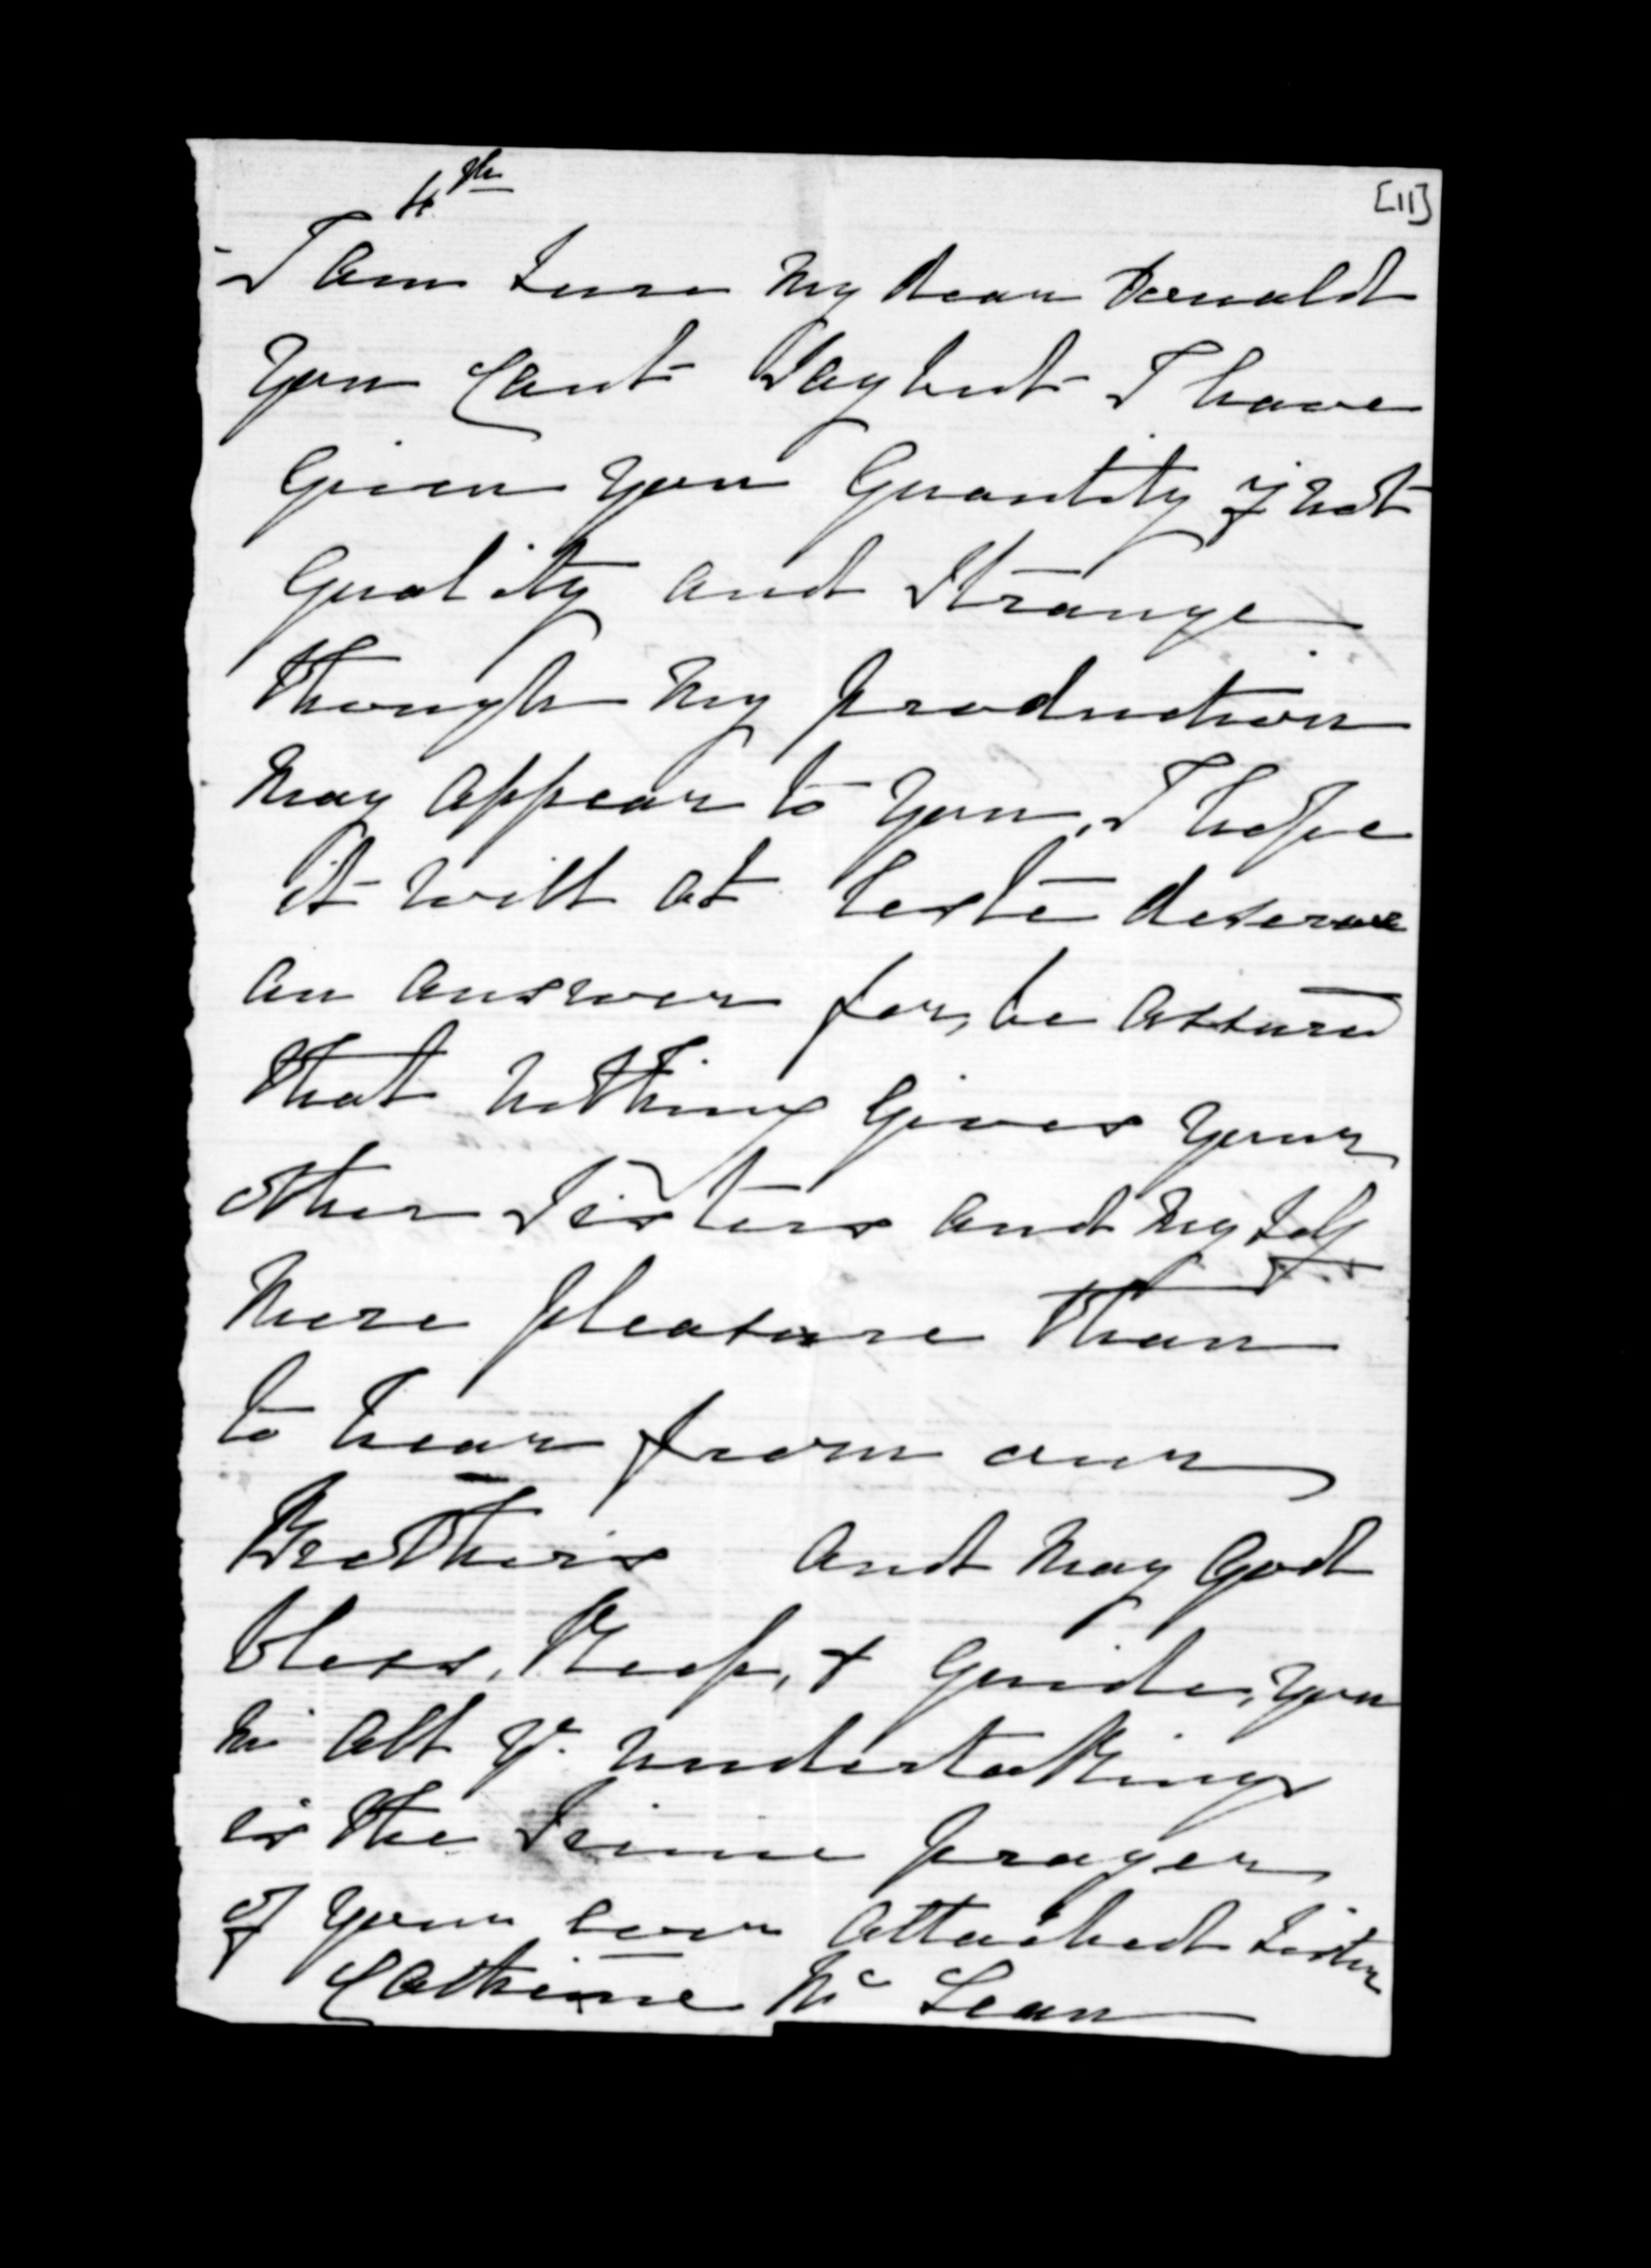 4th
[11]
I am sure my dear Donald
you cant say but I have
given you quantity if not
quality and strange
though my production
may appear to you, I hope
it will at leste deserve
an answer for, be assured
that nothing gives your
other Sisters and myself
more pleasure than
to hear from our
Brothers and may God
bless, Keep, & guide, you
in all yr. undertakings
is the prayer
of your ever attached Sister
Catherine McLean